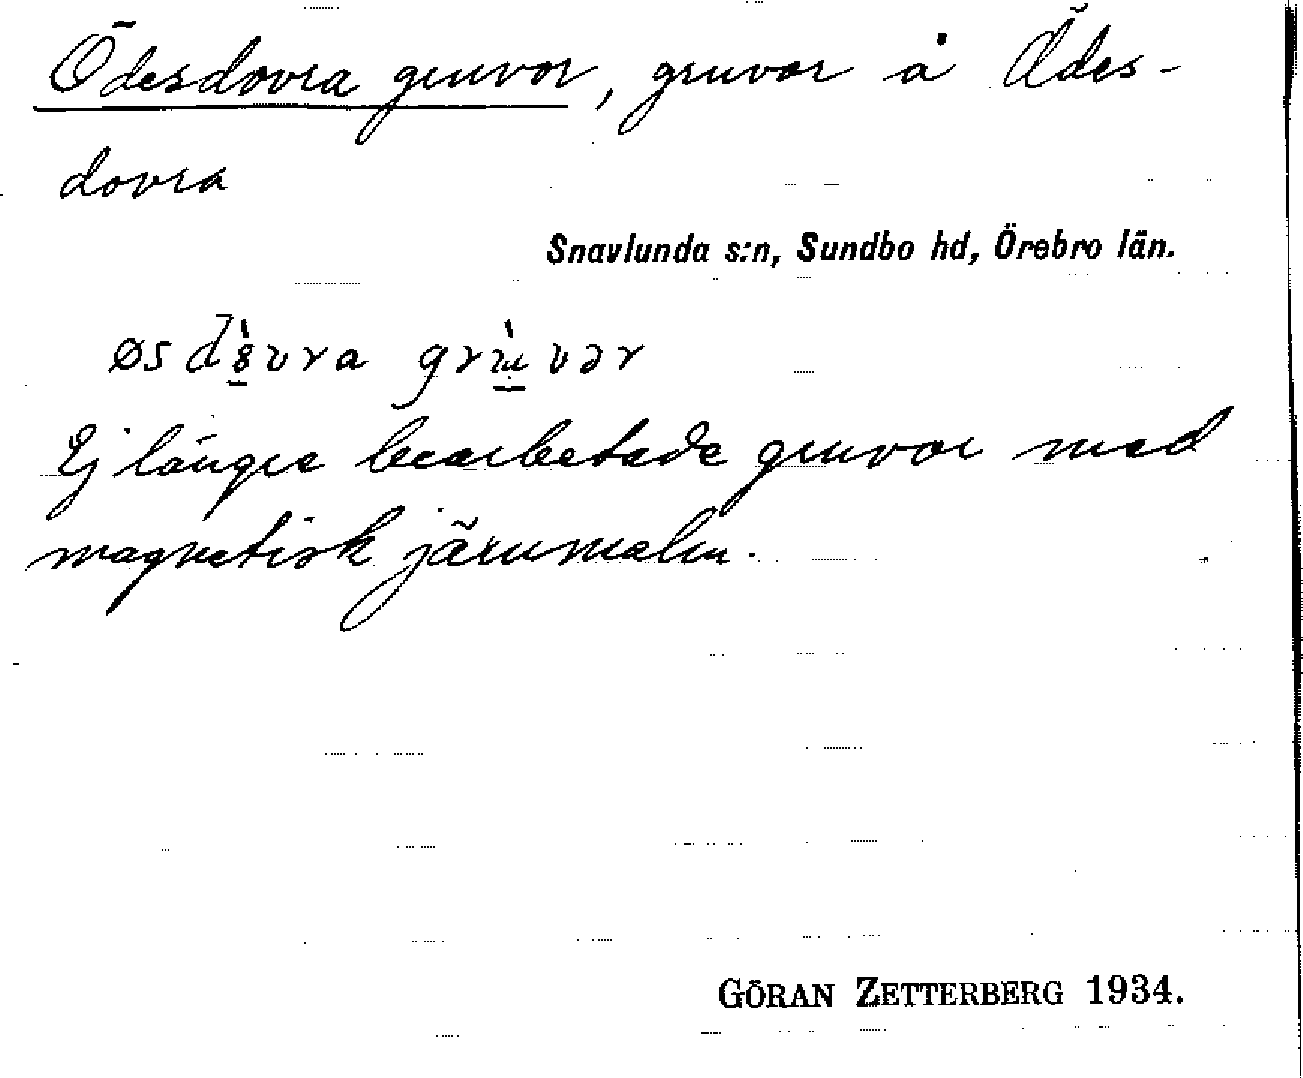 Ödesdovra gruvor, gruvor å Ödes-
dovra
Snavlunda s:n, Sundbo hd, Örebro län.
øsdȣ̀vra grùvər
Ej längre bearbetade gruvor med
magnetisk järnmalm.
GÖRAN ZETTERBERG 1934.